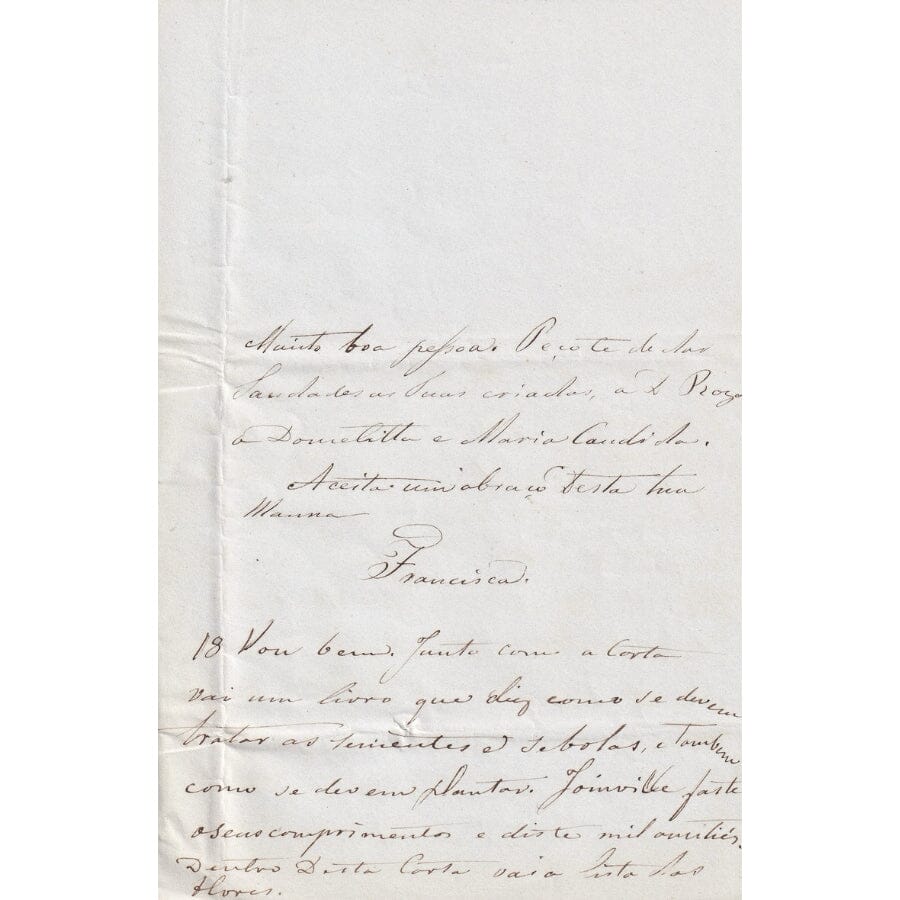 Muito boa peſsoa. Peço te de dar
Saudades as Suas criadas, a D
a Domelilla e Maria Candida.
Aceita um abraço desta tua
Manna
Francisca.
18 Vou bem. Junto com a Carta
vai um livro que diz como se devem
tratar as sementes e sebolas, e tambem
como se devem plantar. Joinville faste
os seus comprimentos e diste mil
Dentro Desta Carta vai a lista das
flores.